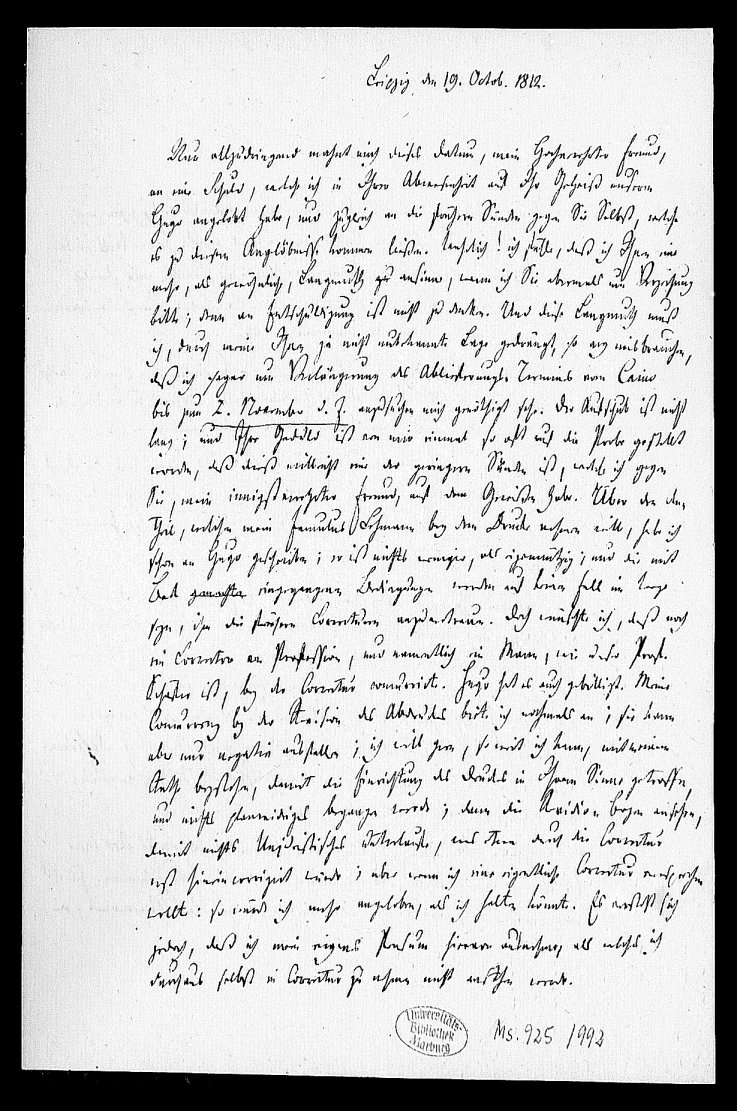 Leipzig den 19. Octob. 1812.
Nur allzudringend mahnt mich dieses Datum, mein Hochverehrter Freund,
an eine Schuld, welche ich in Ihrer Abwesenheit auf Ihr Geheiß unserm
Hugo angelobt habe, und zugleich an die früheren Sünden gegen Sie Selbst, welche
es zu diesem Angelöbnisse kommen ließen. Wahrlich! ich fühle, daß ich Ihnen eine
mehr, als gewöhnliche, Langmuth zu ansinne, wenn ich Sie abermals um Verzeihung
bitte; denn an Entschuldigung ist nicht zu denken. Und diese Langmuth muß
ich, durch meine Ihnen ja nicht unbekannte Lage gedrängt, so arg mißbrauchen,
daß ich sogar um Verlängerung des Ablieferungs-Termins vom
bis zum 2. November d. J. anzusuchen mich genöthigt sehe. Der Aufschub ist nicht
lang; und Ihre Geduld ist von mir einmal so oft auf die Probe gestellt
worden, daß dieß vielleicht eine der geringern Sünden ist, welche ich gegen
Sie, mein innigstverehrter Freund, auf dem Gewissen habe. Über den An-
Theil, welchen mein Famulus Lehmann bey dem Druck nehmen will, habe ich
schon an Hugo geschrieben; er ist nichts weniger, als eigennützig; und die mit
Beck gemachten eingegangenen Bedingungen werden auf keinen Fall im Wege
seyn, ihm die früheren Correcturen anzuvertrauen. Doch wünschte ich, daß noch
ein Corrector von Profession, und namentlich ein Mann, wie unser Prof.
Schäfer ist, bey der Correctur concurrirte. Hugo hat es auch gebilligt. Meine
Concurrenz bey der Revision des Abdrucks biete ich nochmals an; sie kann
aber nur negativ ausfallen; ich will gern, so weit ich kann, mit meinem
Rathe beystehen, damit die Einrichtung des Drucks in Ihrem Sinne getroffen,
und nichts planwidriges begangen werde; dann die Revisions-Bogen ansehen,
damit nichts Unjuristisches unterlaufe, was etwa durch die Correctur
erst hineincorrigirt würde; aber wenn ich eine eigentliche Correctur versprechen
wollte: so würde ich mehr angeloben, als ich halten könnte. Es versteht sich
jedoch, daß ich mein eigenes Pensum hiervon ausnehme, als welches ich
durchaus selbst in Correctur zu nehmen nicht anstehen werde.
Universitäts-
Bibliothek
Marburg
Ms. 925/992